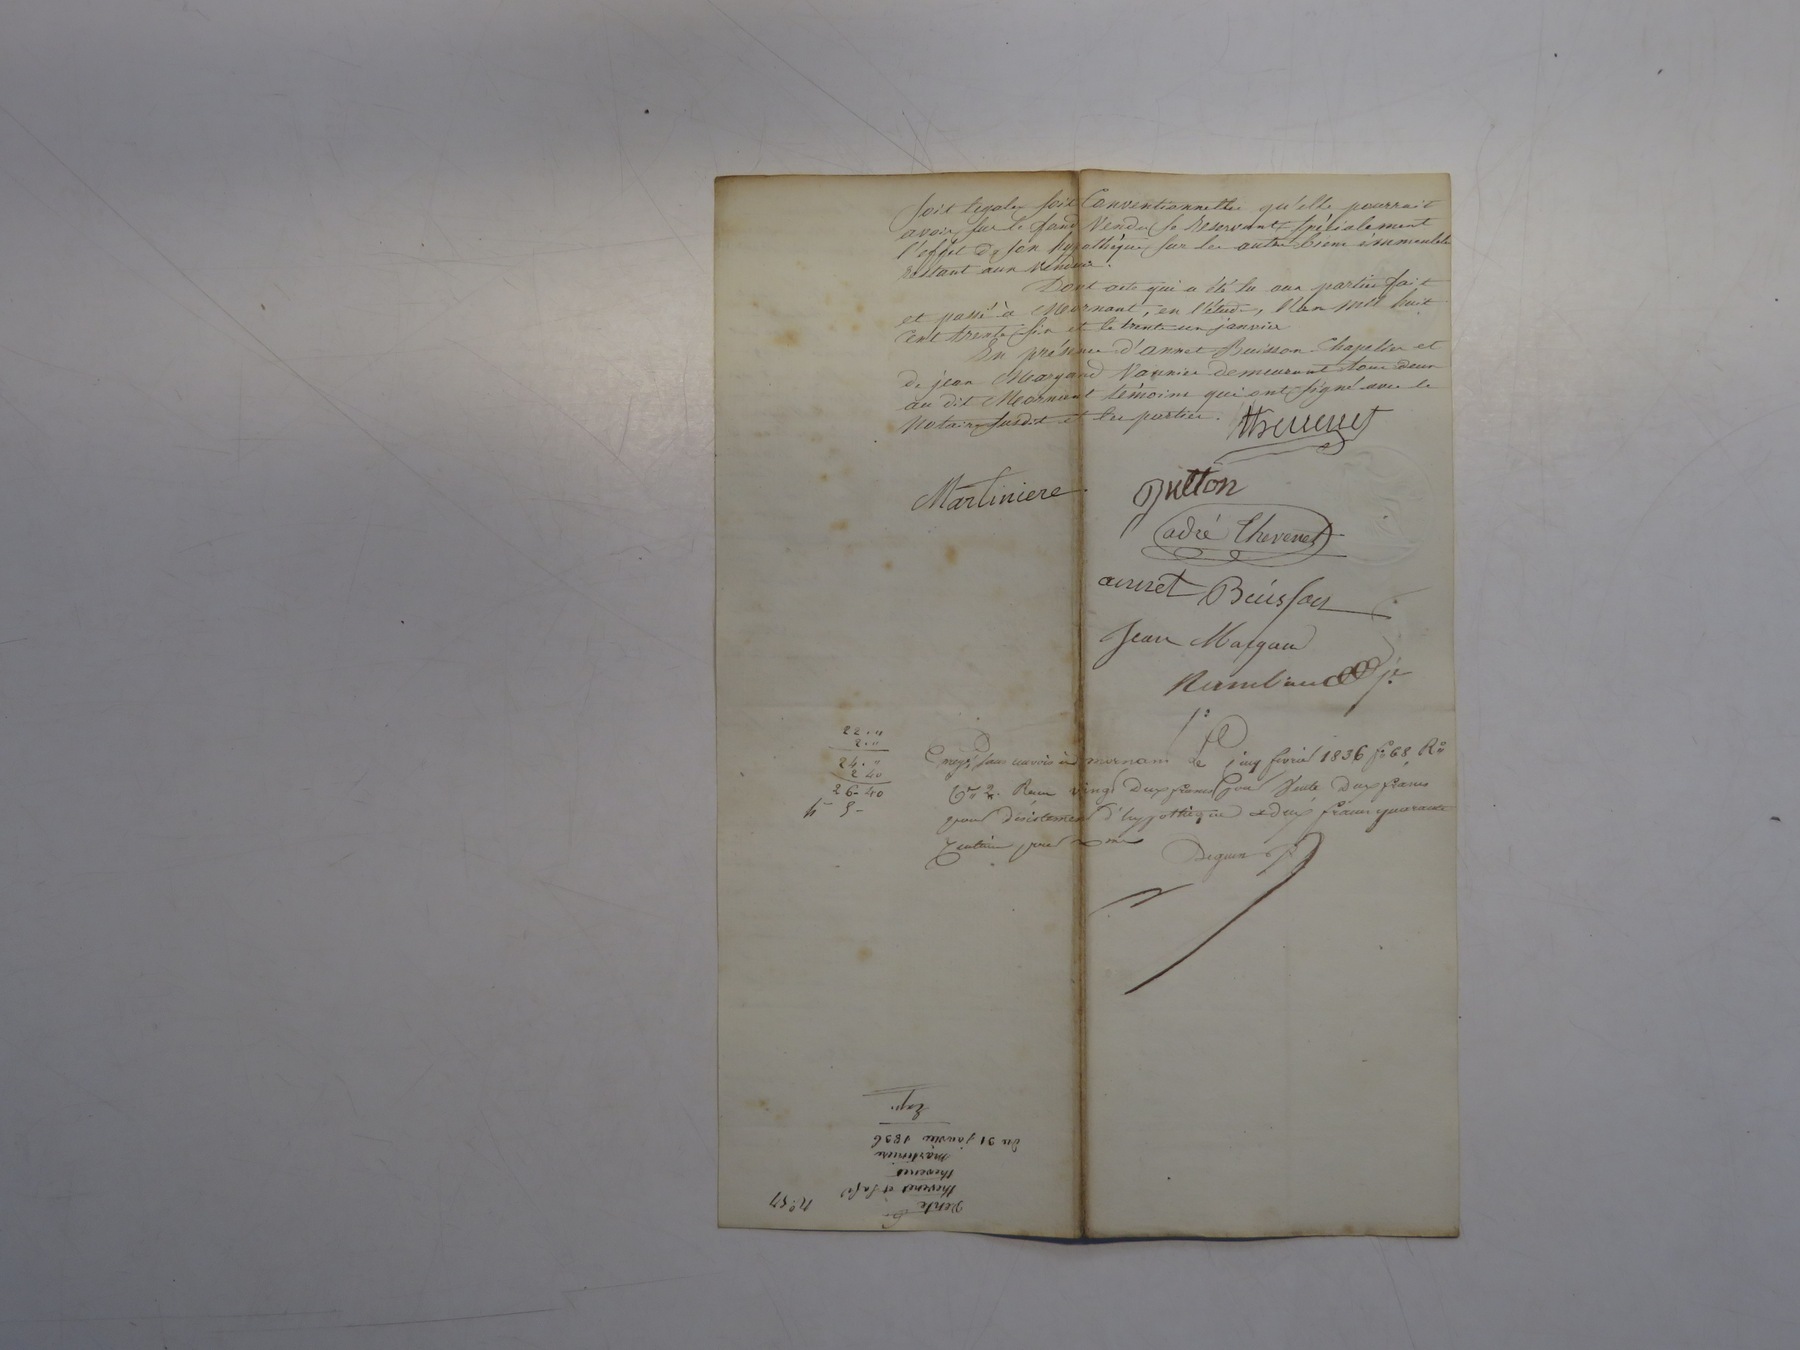 soit legale soit Conventionnelle qu'elle pourrait
avoir sur le fond Vendu se reservant spécialement
l'effet de son hypothèque sur les autres biens immeubles
restant aux Vendeurs.
Dont acte qui a été lu aux parties fait
et passé à Mornant, en l'étude, l'an mil huit
cent trente six et le trente un janvier
En présence d'annet Buisson Chapelier et
de jean Margand Vannier demeurant tous deux
au dit Mornant témoins qui ont signé avec le
Notaire susdit et les parties.
Thevenet
Martiniere
Putton
adré Thevenet
annet Buisson
Jean Margand
Rambaud
22.."
2.."
24.."
2 40
26-40
à mornant le cinq fevrier 1836 f° 68 R°
Reçu vingt deux francs pour Vente Deux francs
pour désistement d'hypothèque et deux francs quarante
centimes pour
N° 57
Vente
thevenet et
thevenet
martiniere
du 31 janvier 1836
Exp.